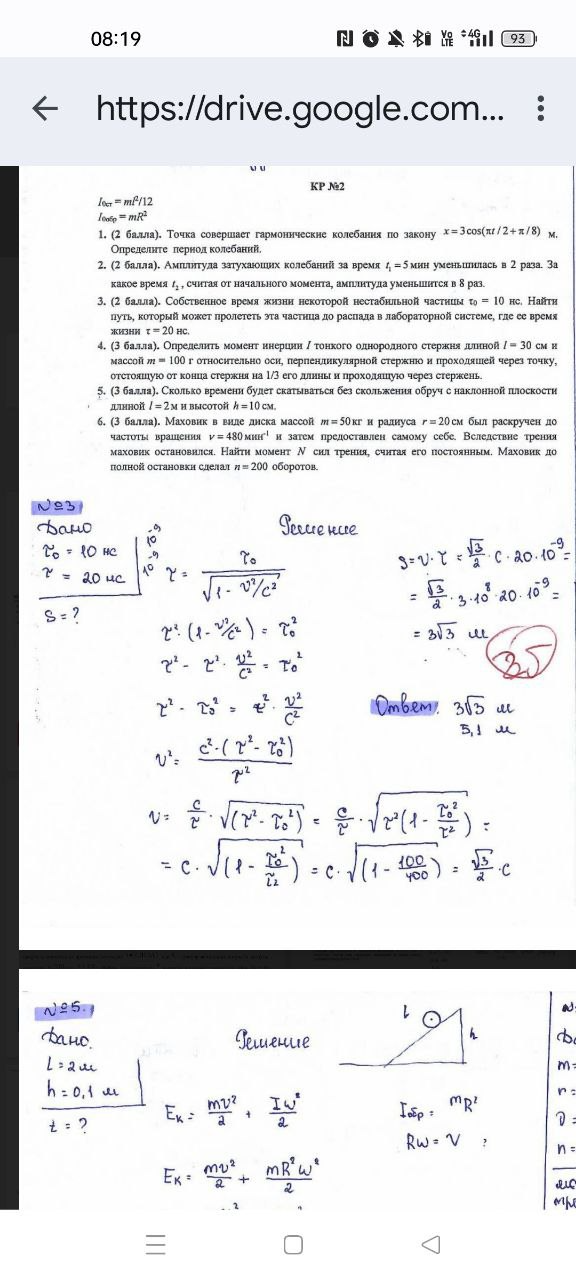 08:19
Vo LTE 4G 93
https://drive.google.com...
КР №2
I₀ст = ml²/12
I₀обр = mR²
1. (2 балла). Точка совершает гармонические колебания по закону x = 3cos(πt / 2 + π / 8) м.
Определите период колебаний.
2. (2 балла). Амплитуда затухающих колебаний за время t₁ = 5 мин уменьшилась в 2 раза. За
какое время t₂, считая от начального момента, амплитуда уменьшится в 8 раз.
3. (2 балла). Собственное время жизни некоторой нестабильной частицы τ₀ = 10 нс. Найти
путь, который может пролететь эта частица до распада в лабораторной системе, где ее время
жизни τ = 20 нс.
4. (3 балла). Определить момент инерции I тонкого однородного стержня длиной l = 30 см и
массой m = 100 г относительно оси, перпендикулярной стержню и проходящей через точку,
отстоящую от конца стержня на 1/3 его длины и проходящую через стержень.
5. (3 балла). Сколько времени будет скатываться без скольжения обруч с наклонной плоскости
длиной l = 2 м и высотой h = 10 см.
6. (3 балла). Маховик в виде диска массой m = 50 кг и радиуса r = 20 см был раскручен до
частоты вращения ν = 480 мин⁻¹ и затем предоставлен самому себе. Вследствие трения
маховик остановился. Найти момент N сил трения, считая его постоянным. Маховик до
полной остановки сделал n = 200 оборотов.
№3
Дано
τ₀ = 10 нс 10⁻⁹
τ = 20 нс 10⁻⁹
S = ?
Решение
τ = τ₀ / √(1 - v²/c²)
τ² · (1 - v²/c²) = τ₀²
τ² - τ² · v²/c² = τ₀²
τ² - τ₀² = τ² · v²/c²
v² = c² · (τ² - τ₀²) / τ²
v = c/τ · √(τ² - τ₀²) = c/τ · √(τ²(1 - τ₀²/τ²)) =
= c · √(1 - τ₀²/τ²) = c · √(1 - 100/400) = √3/2 · c
S = v · τ = √3/2 · c · 20 · 10⁻⁹ =
= √3/2 · 3 · 10⁸ · 20 · 10⁻⁹ =
= 3√3 м
Ответ: 3√3 м
5,1 м
№5.
Дано.
l = 2 м
h = 0,1 м
t = ?
Решение
l
h
Eк = mv²/2 + Iω²/2
Iобр = mR²
Rω = v ;
Eк = mv²/2 + mR²ω²/2
m=
r=
n=